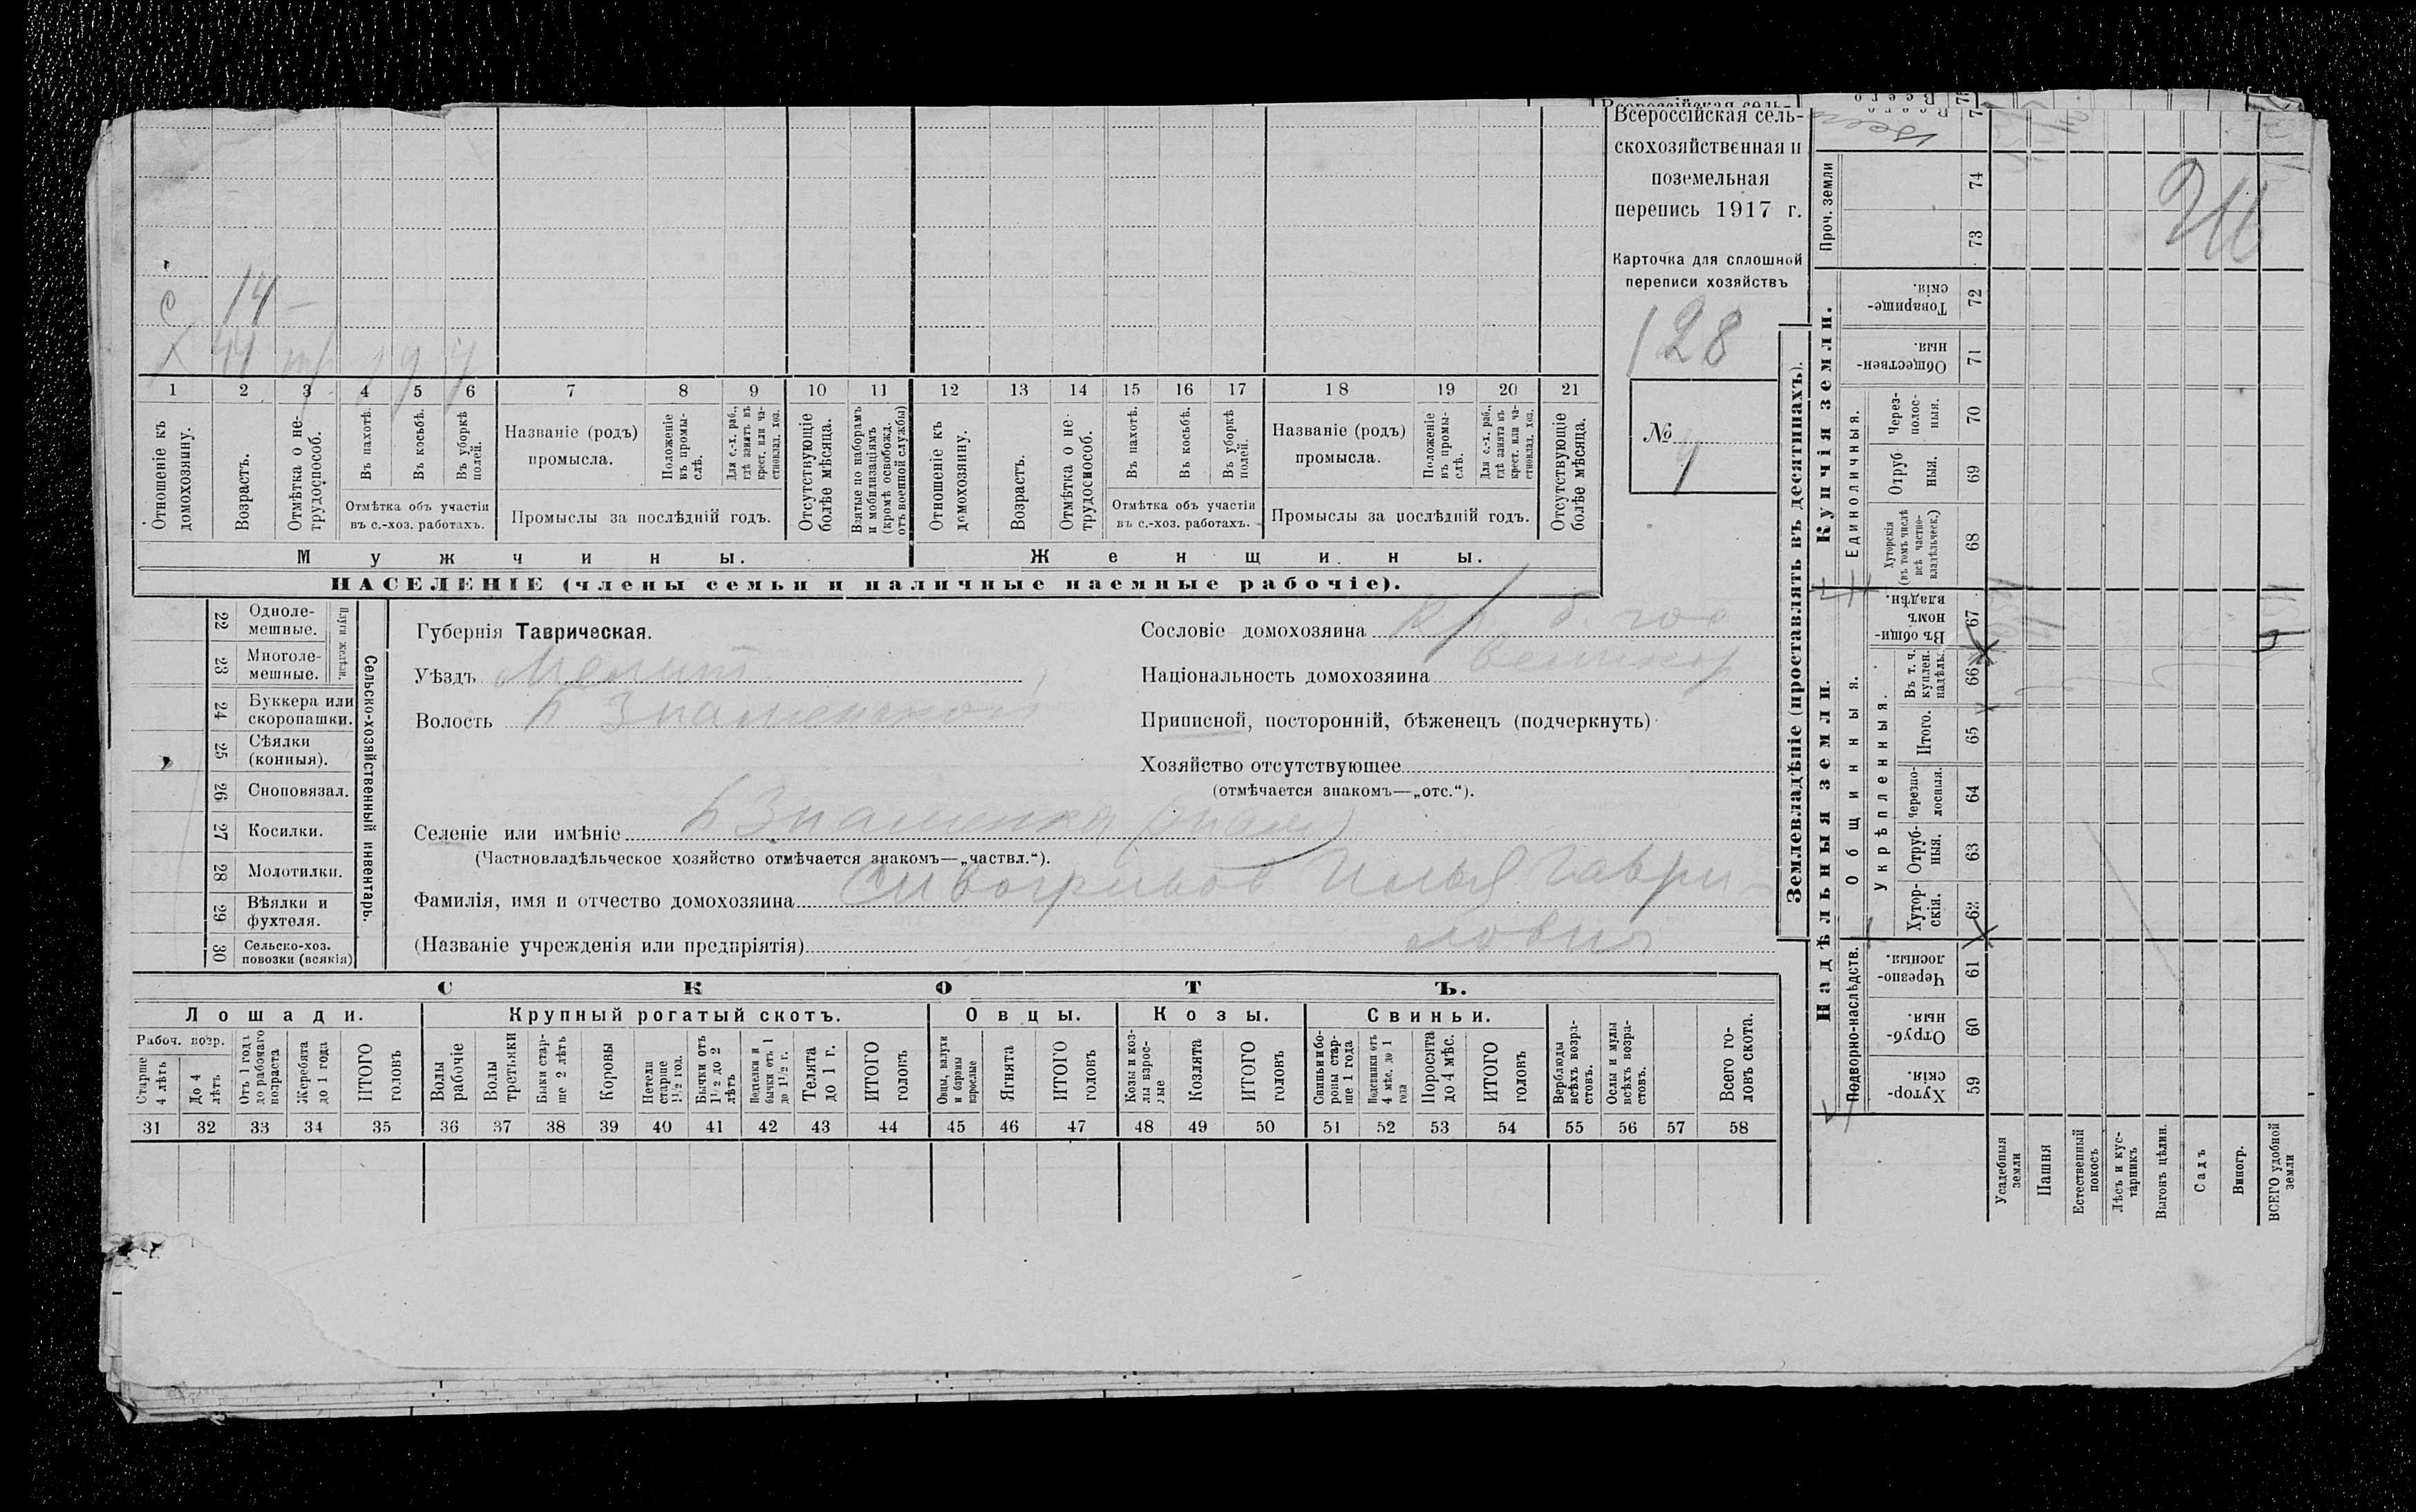 Всероссійская сель-
скохозяйственная и
поземельная
перепись 1917 г.
Карточка для сплошной
переписи хозяйствъ
128
№
с 14 —
х 44
1 2 3 4 5 6 7 8 9 10 11 12 13 14 15 16 17 18 19 20 21
Отношеніе къ домохозяину.
Возрастъ.
Отмѣтка о не-трудоспособ.
Въ пахотѣ.
Въ косьбѣ.
Въ уборкѣ полей.
Отмѣтка объ участіи
въ с.-хоз. работахъ.
Названіе (родъ)
промысла.
Положеніе въ промы-слѣ.
Для с.-х. раб., гдѣ занятъ въ крест. или ча-стновлад. хоз.
Промыслы за послѣдній годъ.
Отсутствующіе болѣе мѣсяца.
Взятые по наборамъ и мобилизаціямъ (кромѣ освобожд. отъ военной службы)
Отношеніе къ домохозяину.
Возрастъ.
Отмѣтка о не-трудоспособ.
Въ пахотѣ.
Въ косьбѣ.
Въ уборкѣ полей.
Отмѣтка объ участіи
въ с.-хоз. работахъ.
Названіе (родъ)
промысла.
Положеніе въ промы-слѣ.
Для с.-х. раб., гдѣ занята въ крест. или ча-стновлад. хоз.
Промыслы за послѣдній годъ.
Отсутствующіе болѣе мѣсяца.
Мужчины.
Женщины.
НАСЕЛЕНІЕ (члены семьи и наличные наемные рабочіе).
22 Одноле-мешные.
23 Многоле-мешные.
Плуги желѣзн.
24 Буккера или скоропашки.
25 Сѣялки (конныя).
26 Сноповязал.
27 Косилки.
28 Молотилки.
29 Вѣялки и фухтеля.
30 Сельско-хоз. повозки (всякія)
Сельско-хозяйственный инвентарь.
Губернія Таврическая.
Уѣздъ Мелит
Волость Б Знаменской
Селеніе или имѣніе Б Знаменка
(Частновладѣльческое хозяйство отмѣчается знакомъ—„частвл.“).
Фамилія, имя и отчество домохозяина Сивогривов Илья Гаври-
(Названіе учрежденія или предпріятія) лович
Сословіе домохозяина Кр. б. гос
Національность домохозяина великор
Приписной, посторонній, бѣженецъ (подчеркнуть)
Хозяйство отсутствующее
(отмѣчается знакомъ—„отс.“).
СКОТЪ.
Лошади.
Крупный рогатый скотъ.
Овцы.
Козы.
Свиньи.
Рабоч. возр.
Старше 4 лѣтъ
До 4 лѣтъ
Отъ 1 года до рабочаго возраста
Жеребята до 1 года
ИТОГО головъ
Волы рабочіе
Волы третьяки
Быки стар-ше 2 лѣтъ
Коровы
Нетели старше 1½ год.
Бычки отъ 1½ до 2 лѣтъ
Подтелки и бычки отъ 1 до 1½ г.
Телята до 1 г.
ИТОГО головъ
Овцы, валухи и бараны взрослые
Ягнята
ИТОГО головъ
Козы и коз-лы взрос-лые
Козлята
ИТОГО головъ
Свиньи и бо-ровы стар-ше 1 года
Подсвинки отъ 4 мѣс. до 1 года
Поросята до 4 мѣс.
ИТОГО головъ
Верблюды всѣхъ возра-стовъ.
Ослы и мулы всѣхъ возра-стовъ.
Всего го-ловъ скота.
31 32 33 34 35 36 37 38 39 40 41 42 43 44 45 46 47 48 49 50 51 52 53 54 55 56 57 58
Землевладѣніе (проставлять въ десятинахъ).
Надѣльныя земли.
Купчія земли.
Проч. земли
Подворно-наслѣдств.
Общинныя.
Укрѣпленныя.
Единоличныя.
Хутор-скія. 59
Отруб-ныя. 60
Черезпо-лосныя. 61
Хутор-скія. 62
Отруб-ныя. 63
Черезпо-лосныя. 64
Итого. 65
Въ т. ч. куплен. надѣлы. 66
Въ общи-номъ владѣн. 67
Хуторскія (въ томъ числѣ всѣ частно-владѣльчек.) 68
Отруб ныя. 69
Через-полос-ныя. 70
Обществен-ныя. 71
Товарище-скія. 72
73
74
Всего
Усадебныя земли
Пашня
Естественный покосъ
Лѣсъ и кус-тарникъ
Выгонъ цѣлин.
Садъ
Виногр.
ВСЕГО удобной земли